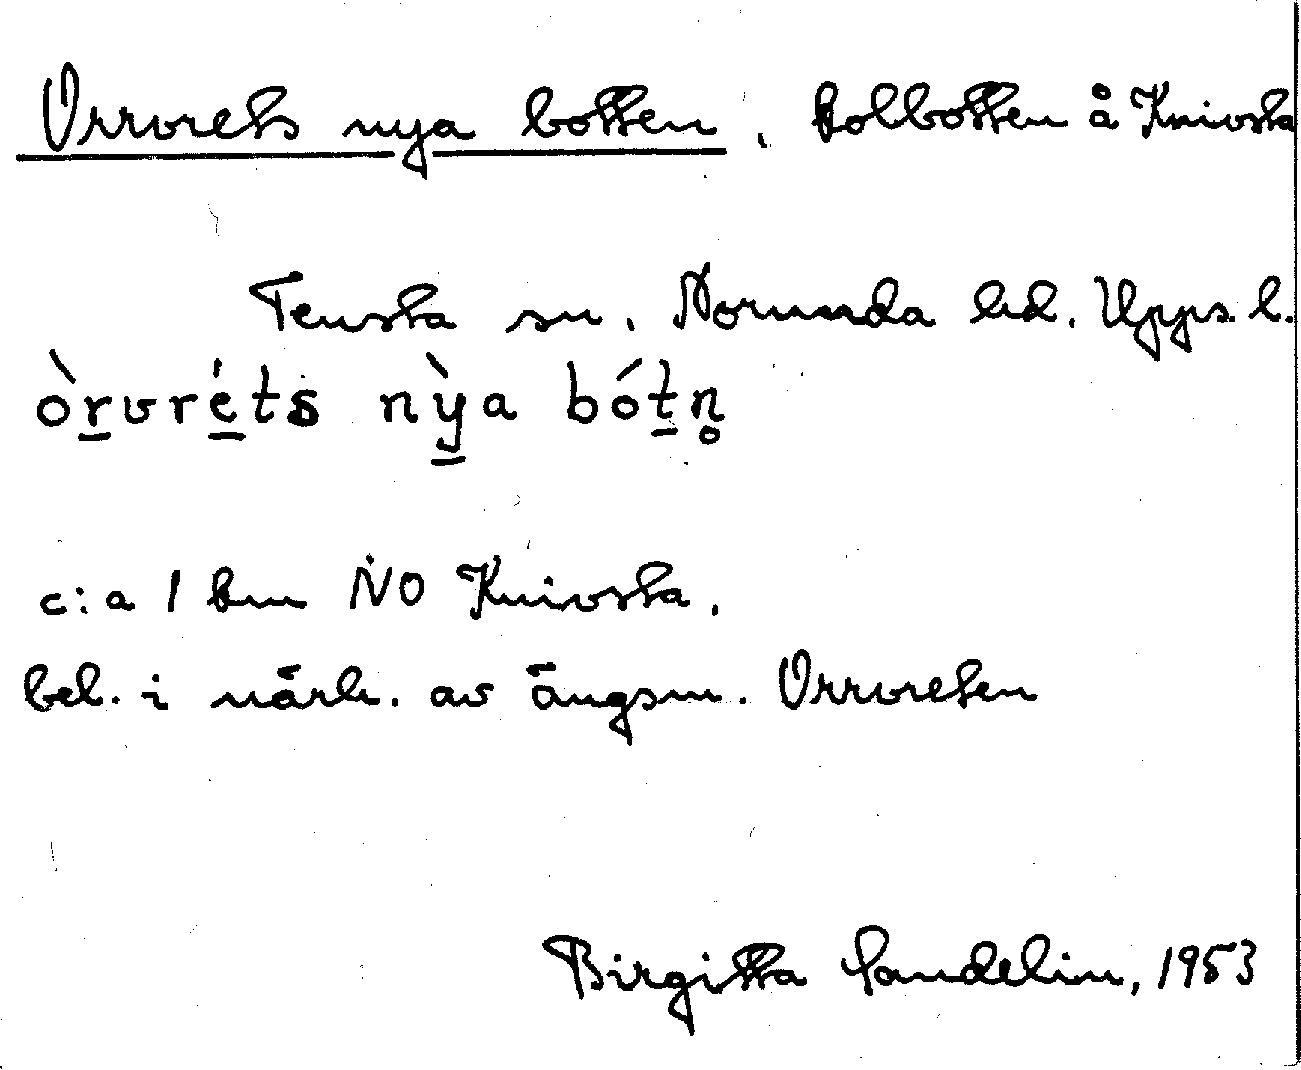 Orrvrets nya botten, Kolbotten å Knivsta
Tensta sn, Norunda hd. Upps l.
òrvréts nỳa bótn̥
c:a 1 km NO Knivsta.
bel. i närh. av ängsm. Orrvreten
Birgitta Sandelin, 1953